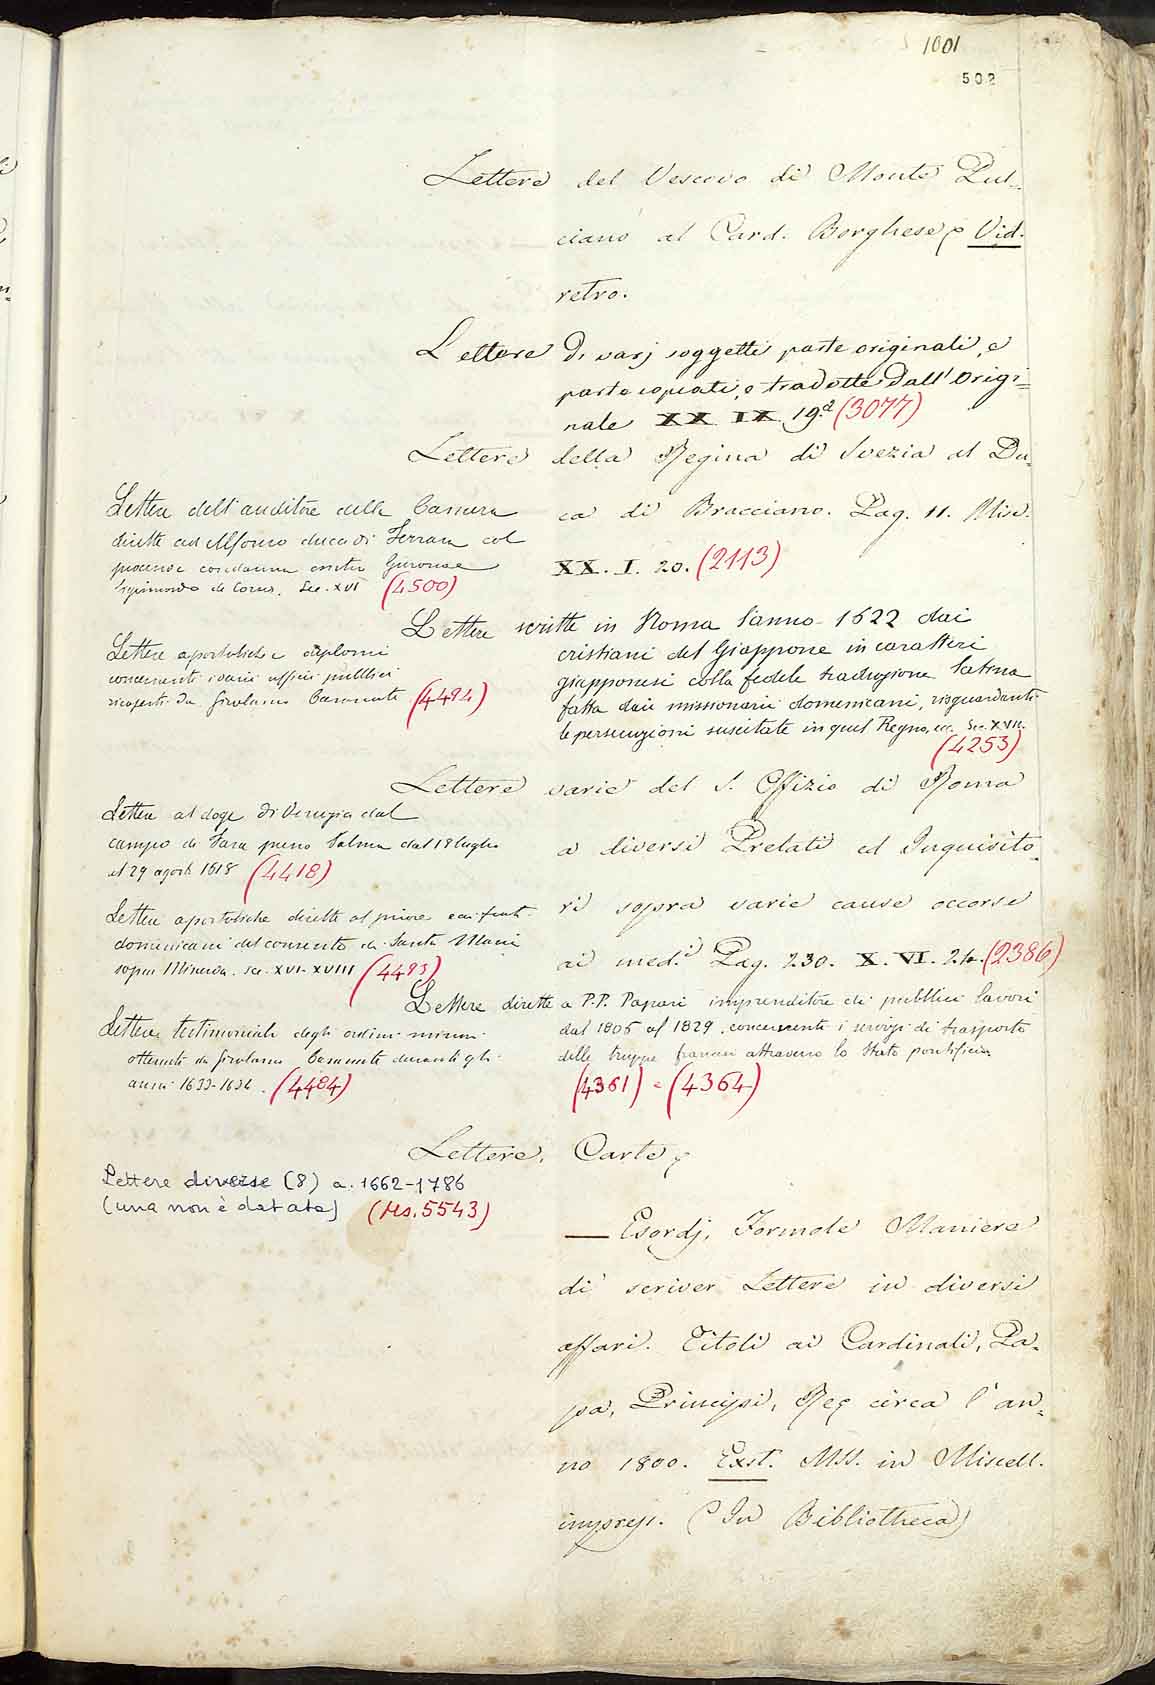 1001
502
Lettere del Vescovo di Monte Pul=
ciano al Card. Borghese Vid.
retro.
Lettere Di varj soggetti parte originali, e
parte copiate, o tradotte dall' Origi=
nale XX IX 19.a (3077)
Lettere della Regina di Svezia al Du=
ca di Bracciano. Pag. 11. Misc.
XX. I. 20. (2113)
Lettere scritte in Roma l'anno 1622 dai
cristiani del Giappone in caratteri
giapponesi colla fedele traduzione latina
fatta dai missionarii domenicani, risguardanti
le persecuzioni suscitate in quel Regno, ec. Sec. XVII.
(4253)
Lettere varie del S. Offizio di Roma
a diversi Prelati ed Inquisito=
ri sopra varie cause occorse
ai med.i Pag. 230. X. VI. 24. (2386)
Lettere dirette a P.P. Papari imprenditore di pubblici lavori
dal 1806 al 1829, concernenti i servizi di trasporto
delle truppe francesi attraverso lo Stato pontificio
(4361) = (4364)
Lettere, Carte
— Esordj, Formole Maniere
di scriver Lettere in diversi
affari. Titoli ai Cardinali, Pa=
pa, Principi, Re circa l'an=
no 1800. Exst. MSS. in Miscell.
impress. (In Bibliotheca)
Lettere dell'auditore della Camera
dirette ad Alfonso duca di Ferrara col
processo e condanna contro
Sec. XVI (4500)
Lettere apostoliche e diplomi
concernenti i varii uffici pubblici
ricoperti da Girolamo (4484)
Lettere al doge di Venezia dal
campo di Fara preso Palma dal 18 luglio
al 29 agosto 1618 (4418)
Lettere apostoliche dirette al priore e ai frati
domenicani del convento di Santa Maria
sopra Minerva. Sec. XVI-XVIII (4493)
Lettere testimoniali degli ordini minori
ottenute da Girolamo durante gli
anni 1633-1634. (4484)
Lettere diverse (8) a. 1662-1786
(una non è datata) (Ms. 5543)